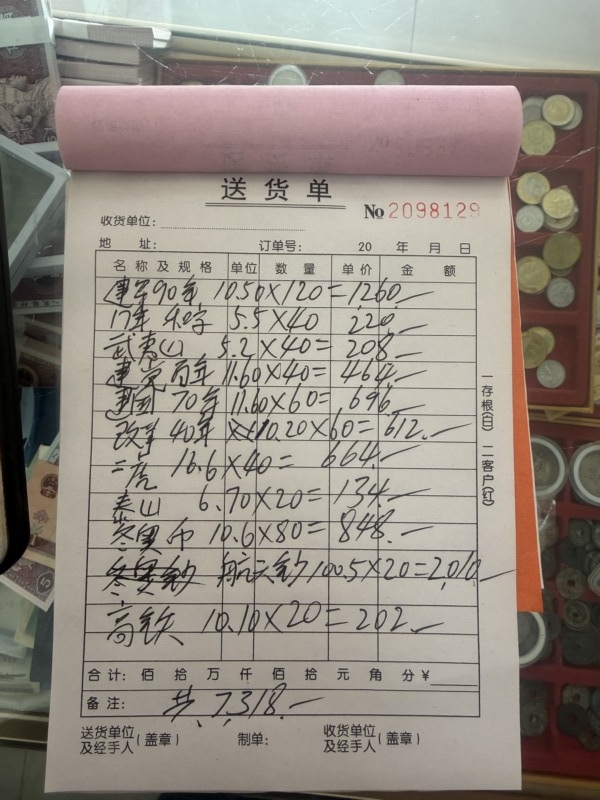 送货单
No 2098129
收货单位：
地 址： 订单号： 20 年 月 日
名称及规格 单位 数量 单价 金额
建军90年 10.50×120=1260.—
17年 和字 5.5×40 220.—
武夷山 5.2×40=208.—
建党百年 11.60×40=464.—
建国 70年 11.60×60=696.—
改革 40年 10.20×60=612.—
二虎 16.6×40= 664.—
泰山 6.70×20=134.—
冬奥币 10.6×80=848.—
冬奥钞 航天钞 100.5×20=2,010.—
高铁 10.10×20=202.—
合计： 佰 拾 万 仟 佰 拾 元 角 分 ¥
备注： 共 7,318.—
送货单位及经手人（盖章） 制单： 收货单位及经手人（盖章）
一存根（白） 二客户（红）